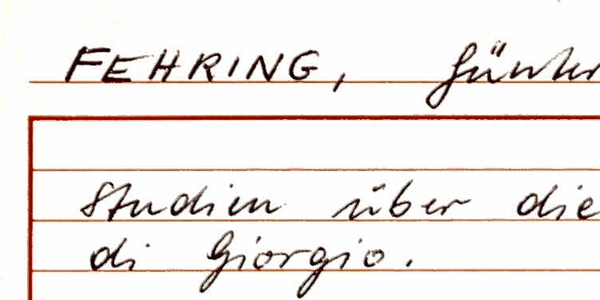 FEHRING, Günter
Studien über die
di Giorgio.